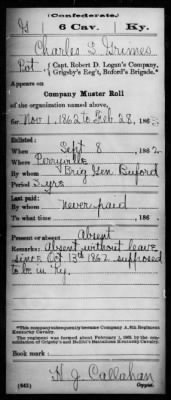 (Confederate.)
G 6 Cav. Ky.
Charles S. Grimes
Pvt., Capt. Robert D. Logan's Company,
Grigsby's Reg't, Buford's Brigade.*
Appears on
Company Muster Roll
of the organization named above,
for Nov 1, 1862 to Feb 28, 1863.
Enlisted:
When Sept 8, 1862.
Where Perryville
By whom Brig Gen Buford
Period 3 yrs
Last paid:
By whom never paid
To what time , 186 .
Present or absent Absent
Remarks: Absent without leave
since Oct 13th 1862 supposed
to be in Ky.
*This company subsequently became Company A, 6th Regiment
Kentucky Cavalry.
Book mark:
H. J. Callahan
(642) Copyist.